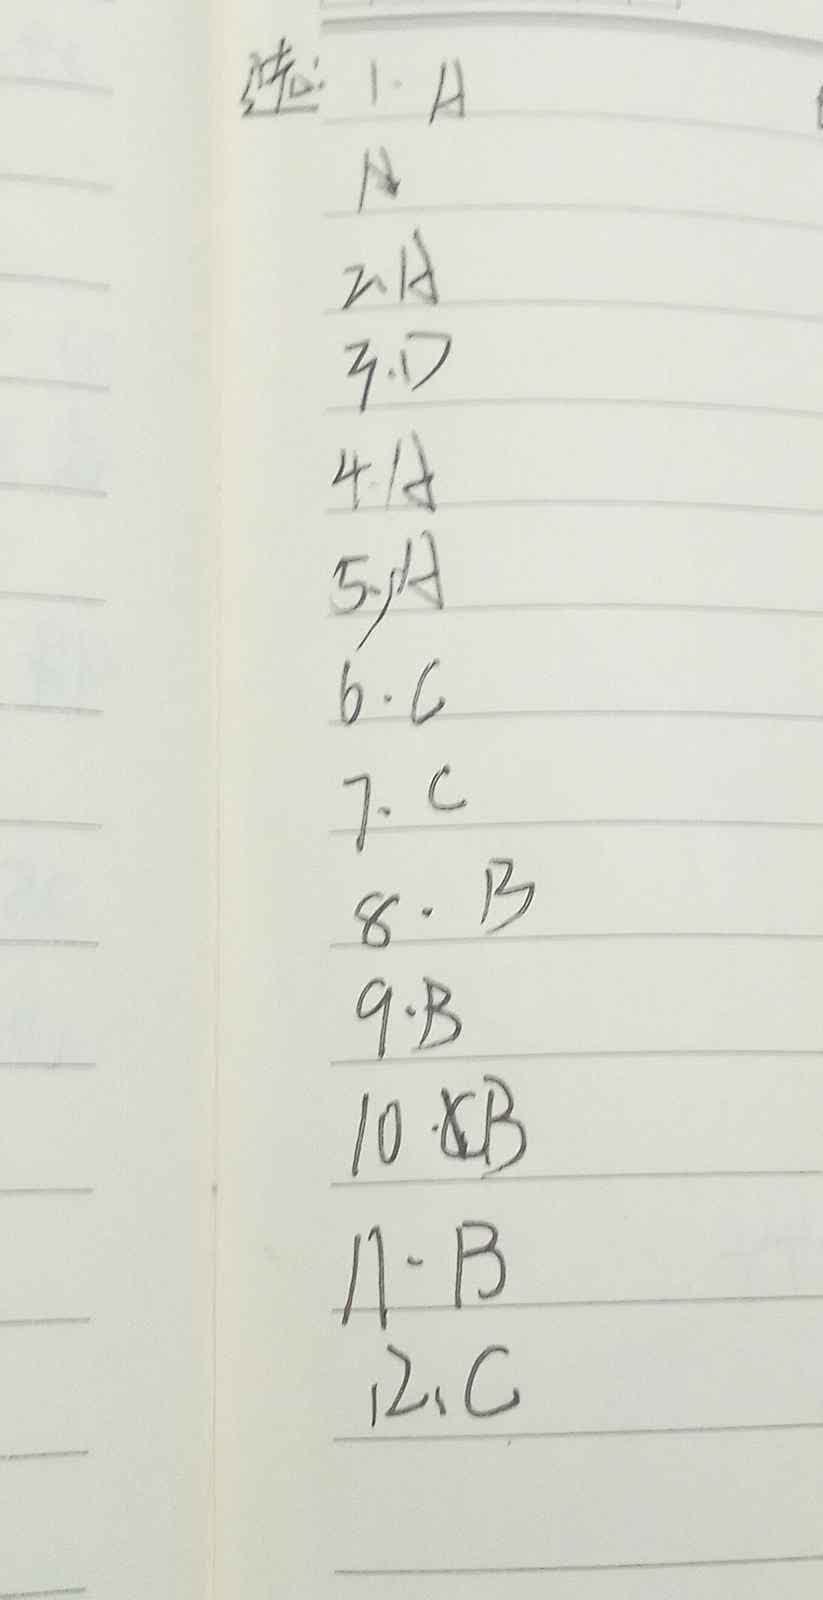 选: 1. A
A
2. A
3. D
4. A
5. A
6. C
7. C
8. B
9. B
10. B
11. B
12. C